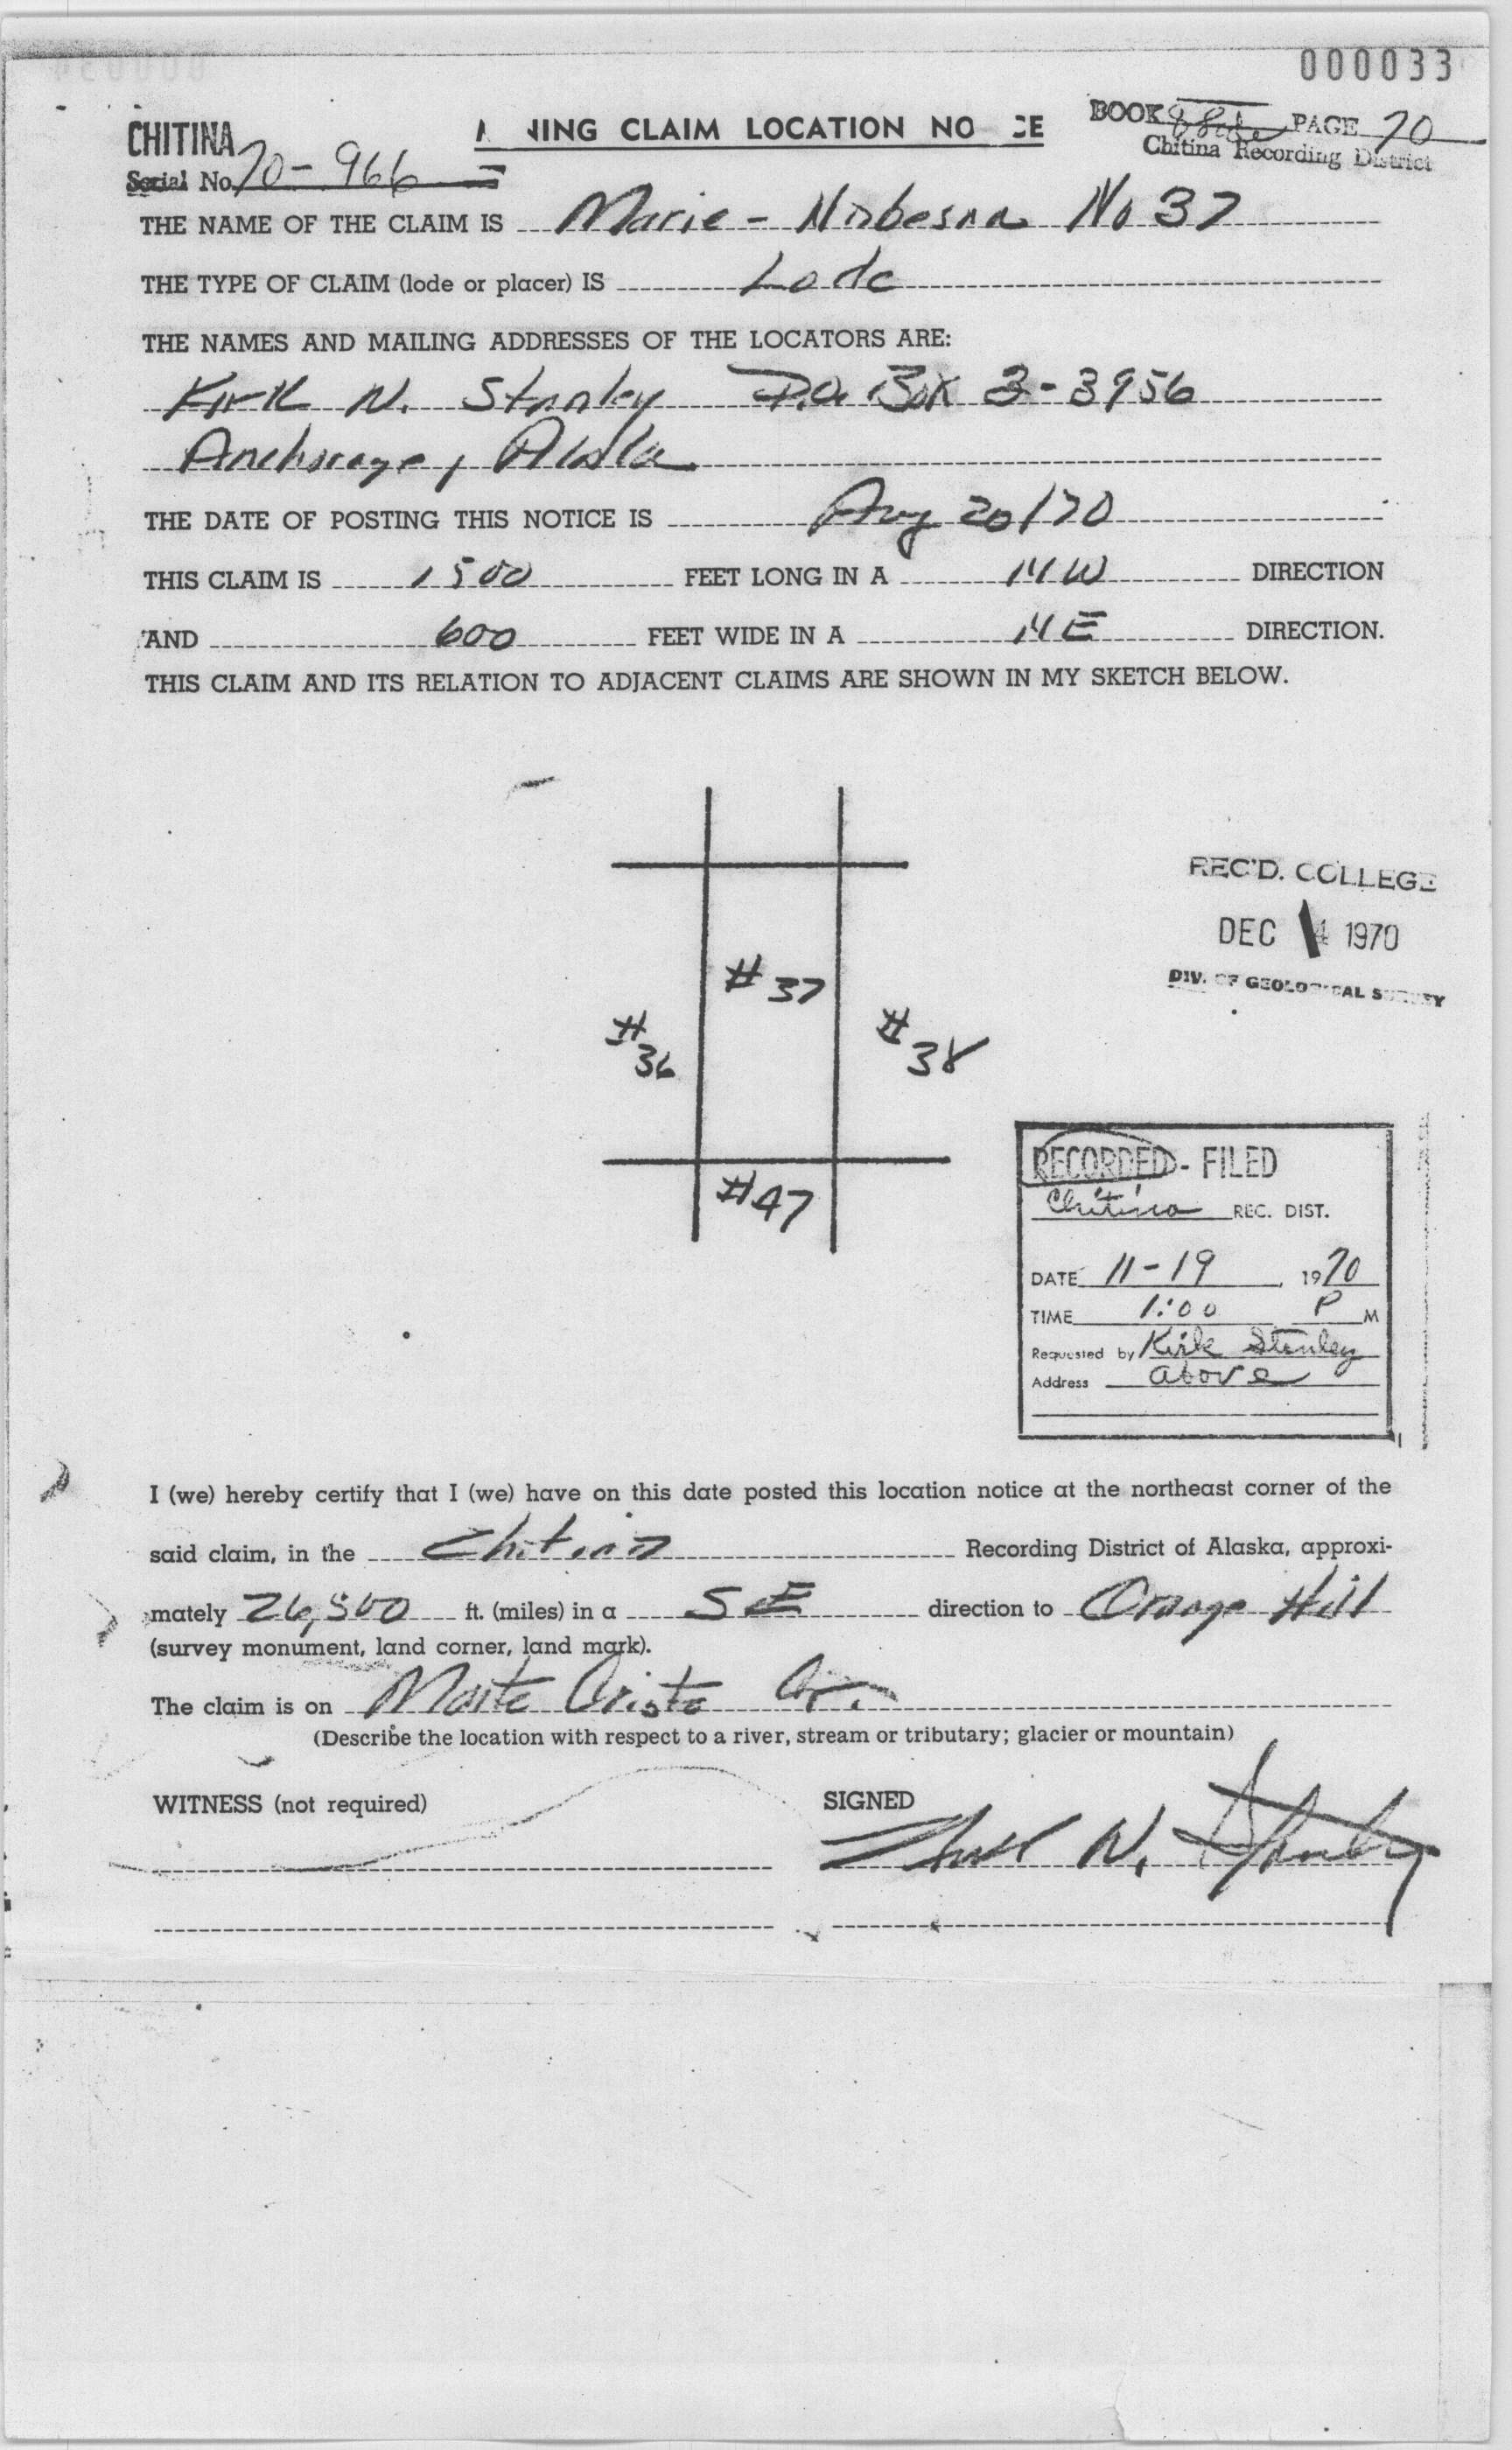 000033
CHITINA
Serial No. 70-966
NING CLAIM LOCATION NO CE
BOOK PAGE 70
Chitina Recording District
THE NAME OF THE CLAIM IS Marie - Nabesna No 37
THE TYPE OF CLAIM (lode or placer) IS Lode
THE NAMES AND MAILING ADDRESSES OF THE LOCATORS ARE:
Kirk N. Stanley P.O. Box 3-3956
Anchorage, Alaska
THE DATE OF POSTING THIS NOTICE IS Aug 20/70
THIS CLAIM IS 1500 FEET LONG IN A NW DIRECTION
AND 600 FEET WIDE IN A NE DIRECTION.
THIS CLAIM AND ITS RELATION TO ADJACENT CLAIMS ARE SHOWN IN MY SKETCH BELOW.
REC'D. COLLEGE
DEC 1970
DIV. OF GEOLOGICAL SURVEY
#37
#36
#38
#47
RECORDED - FILED
Chitina REC. DIST.
DATE 11-19 1970
TIME 1:00 P M
Requested by Kirk Stanley
Address above
I (we) hereby certify that I (we) have on this date posted this location notice at the northeast corner of the
said claim, in the Chitina Recording District of Alaska, approxi-
mately 26,500 ft. (miles) in a SE direction to Orange Hill
(survey monument, land corner, land mark).
The claim is on Monte Cristo Cr.
(Describe the location with respect to a river, stream or tributary; glacier or mountain)
WITNESS (not required)
SIGNED
Kirk N. Stanley